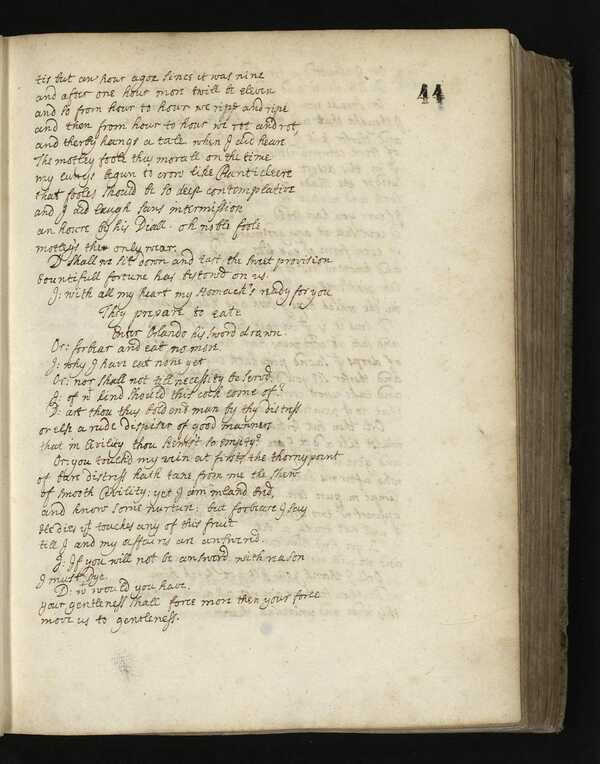 44
tis but an hour agoe since it was nine
and after one hour more twill be eleven
and so from hour to hour we ripe and ripe
and then from hour to hour we rot and rot,
and therby hangs a tale when I did heare
The motley foole thus morall on the time
my lungs begun to crow like Chanticleere
that fooles should be so deep contemplative
and I did laugh sans intermission
an houre by his Diall. oh noble foole
motleys the only wear.
D: shall we sitt down and tast the sweet provision
bountifull fortune has bestowd on us.
J: with all my heart my stomach's ready for you
They prepare to eate
Enter Orlando his sword drawn.
Or: forbear and eat no more
J: why I have eat none yet
Or: nor shall not till necessity be servd.
J: of wt kind should this cock come of?
D: art thou thus boldend man by thy distress
or else a rude despiser of good manners
that in Civility thou seemst so empty?
Or: you touchd my vein at first, the thorny point
of bare distress hath tane from me the shew
of smooth Civility: yet I am inland bred,
and know some nurture: but forbeare I say
He dies yt touches any of this fruit
till I and my affairs are answered.
J: If you will not be answerd with reason
I must dye.
D: wt would you have.
your gentleness shall force more then your force
move us to gentleness.